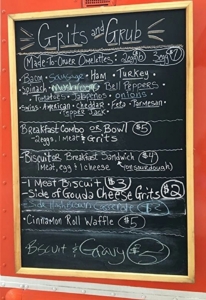 Grits and Grub
Made-To-Order Omelettes
Bacon Sausage Ham Turkey
Spinach Mushrooms Bell Peppers
Tomatoes Jalapenos Onions
Swiss American Cheddar Feta Parmesan
Pepper Jack
Breakfast Combo or Bowl $5
2eggs, 1 meat & Grits
Biscuit or Breakfast Sandwich $4
1 meat, egg & 1 cheese (or sourdough)
- 1 Meat Biscuit $3
- Side of Gouda Cheese Grits $2
Side
- Cinnamon Roll Waffle $5
Biscuit & Gravy $5